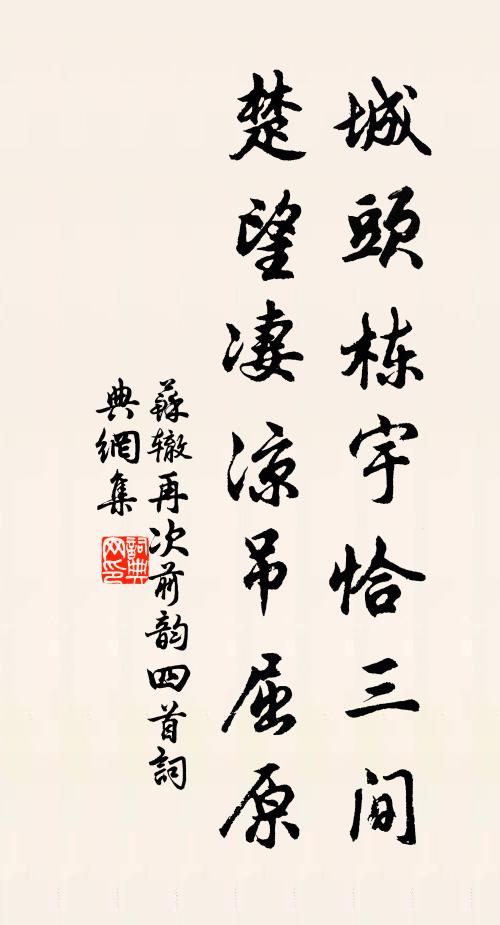 城頭栋宇恰三间
楚望凄凉吊屈原
蘇辙再次前韵四首詞
典網集
詞典
网印